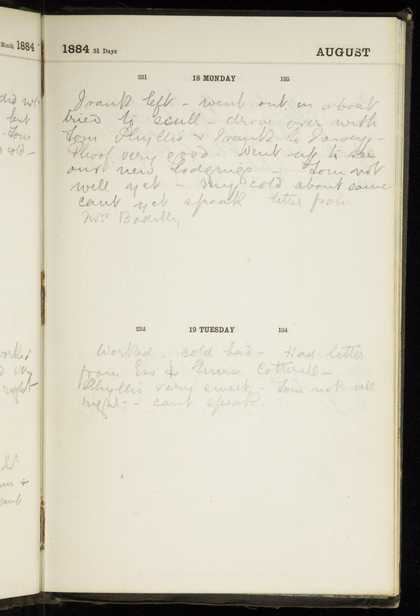 1884 31 Days AUGUST
231 18 MONDAY 135
Frank left - went out in a boat
tried to scull - drove over with
Tom Phyllis & Frank to
very good. Went up to see
our new lodgings - Tom not
well yet - my cold about same
cant yet speak letter from
Mrs
232 19 TUESDAY 134
Worked. cold bad - Had letter
from &
Phyllis very sweet - Tom not all
right - cant speak.
Month 1884
did not
but
Tom
cold -
worked
very
right -
&